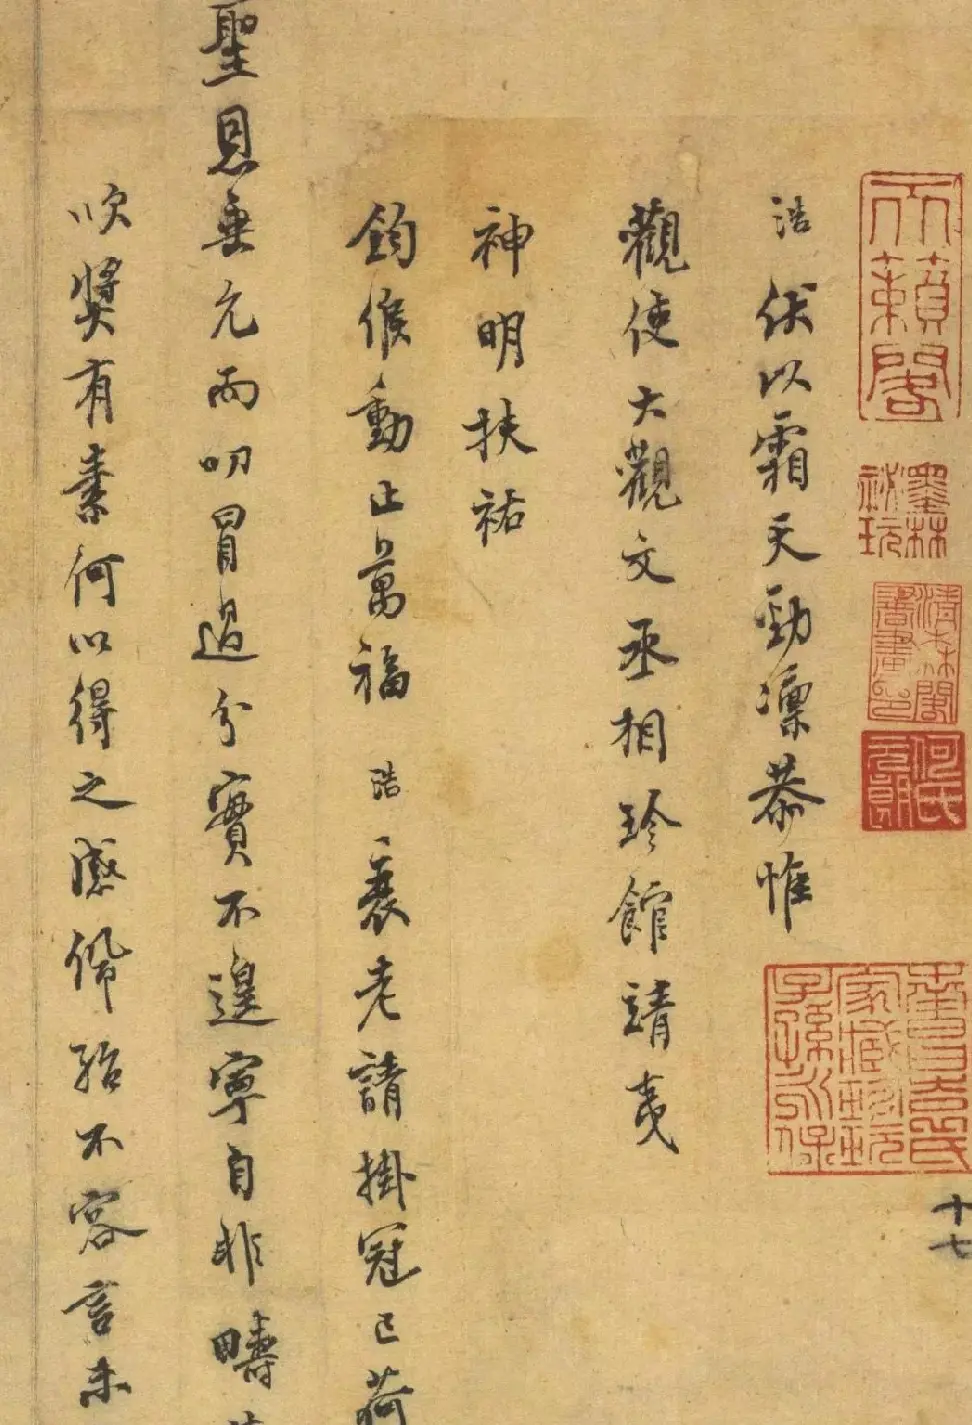 浩伏以霜天勁凜恭惟
觀使大觀文丞相珍館靖夷
神明扶祐
鈞候動止萬福浩衰老請掛冠已荷
聖恩垂允而叨冒過分實不遑寧自非疇
吹獎有素何以得之感佩殆不容言未
天籟閣
墨林祕玩
何氏元朗
項墨林父
子孫永保
家藏珍玩
十七